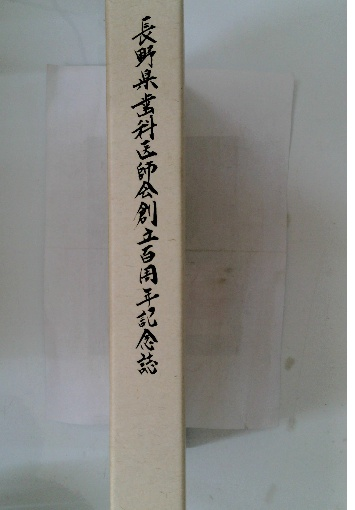 長野県歯科医師会創立百周年記念誌